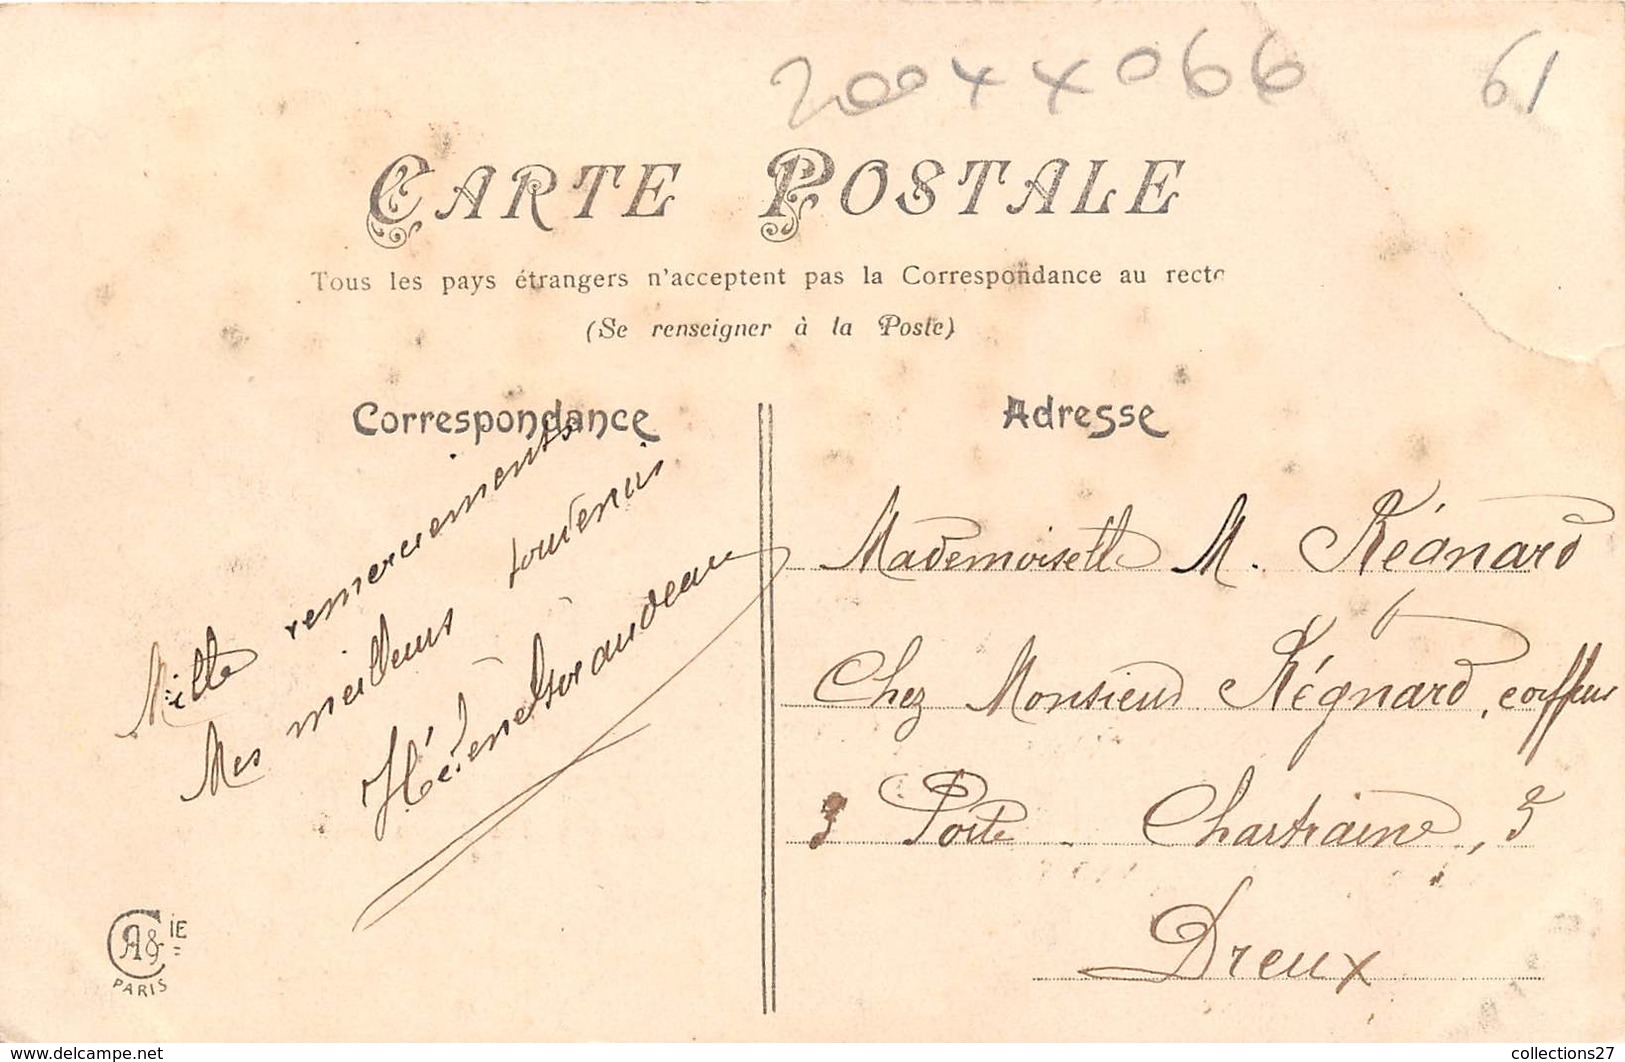 20044066 61
CARTE POSTALE
Tous les pays étrangers n'acceptent pas la Correspondance au recto
(Se renseigner à la Poste)
Correspondance
Mille remerciements
Mes meilleurs souvenirs
Adresse
Mademoiselle M. Régnard
Chez Monsieur Régnard, coiffeur
3 Porte Chartraine, 3
Dreux
A & CIE
PARIS
www.delcampe.net
collections27